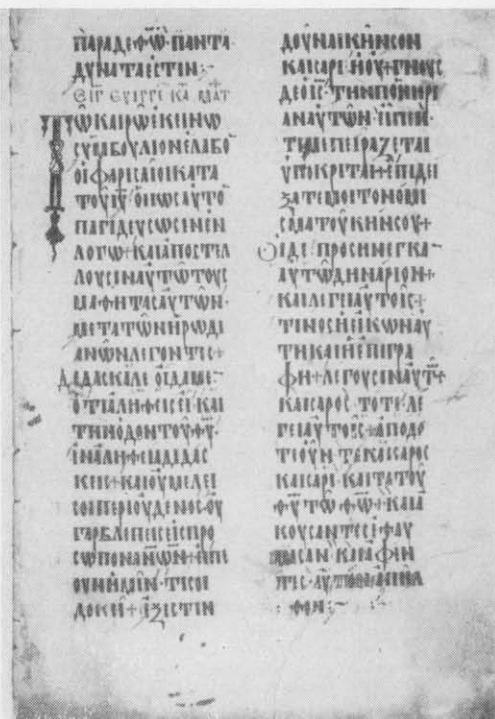 παραδεθω παντα
δυνατα εστιν
τω καιρω εκεινω
συμβουλιον ελαβο
οι φαρισαιοι κατα
του ιυ οπως αυτο
παγιδευσωσιν εν
λογω + και αποστελ
λουσιν αυτω τους
μαθητας αυτων
μετα των ηρωδι
ανων λεγοντες +
διδασκαλε οιδαμε
οτι αληθεις ει και
την οδον του θυ
εν αληθεια διδας
κεις + και ου μελει
σοι περι ουδενος ου
γαρ βλεπεις εις προ
σωπον ανων + ειπε
ουν ημιν τι σοι
δοκει + εξεστιν
δουναι κηνσον
καισαρι η ου + γνους
δε ο ις την πονηρι
αν αυτων ειπεν
τι με πειραζεται
υποκριται επιδει
ξατε μοι το νομι
σμα του κηνσου +
οι δε προσηνεγκα
αυτω δηναριον +
και λεγει αυτοις +
τινος η εικων αυ
τη και η επιγρα
φη + λεγουσιν αυτω +
καισαρος τοτε λε
γει αυτοις + αποδο
τε ουν τα καισαρος
καισαρι και τα του
θυ τω θω + και α
κουσαντες εθαυ
μασαν και αφεν
τες αυτον απηλ
θον